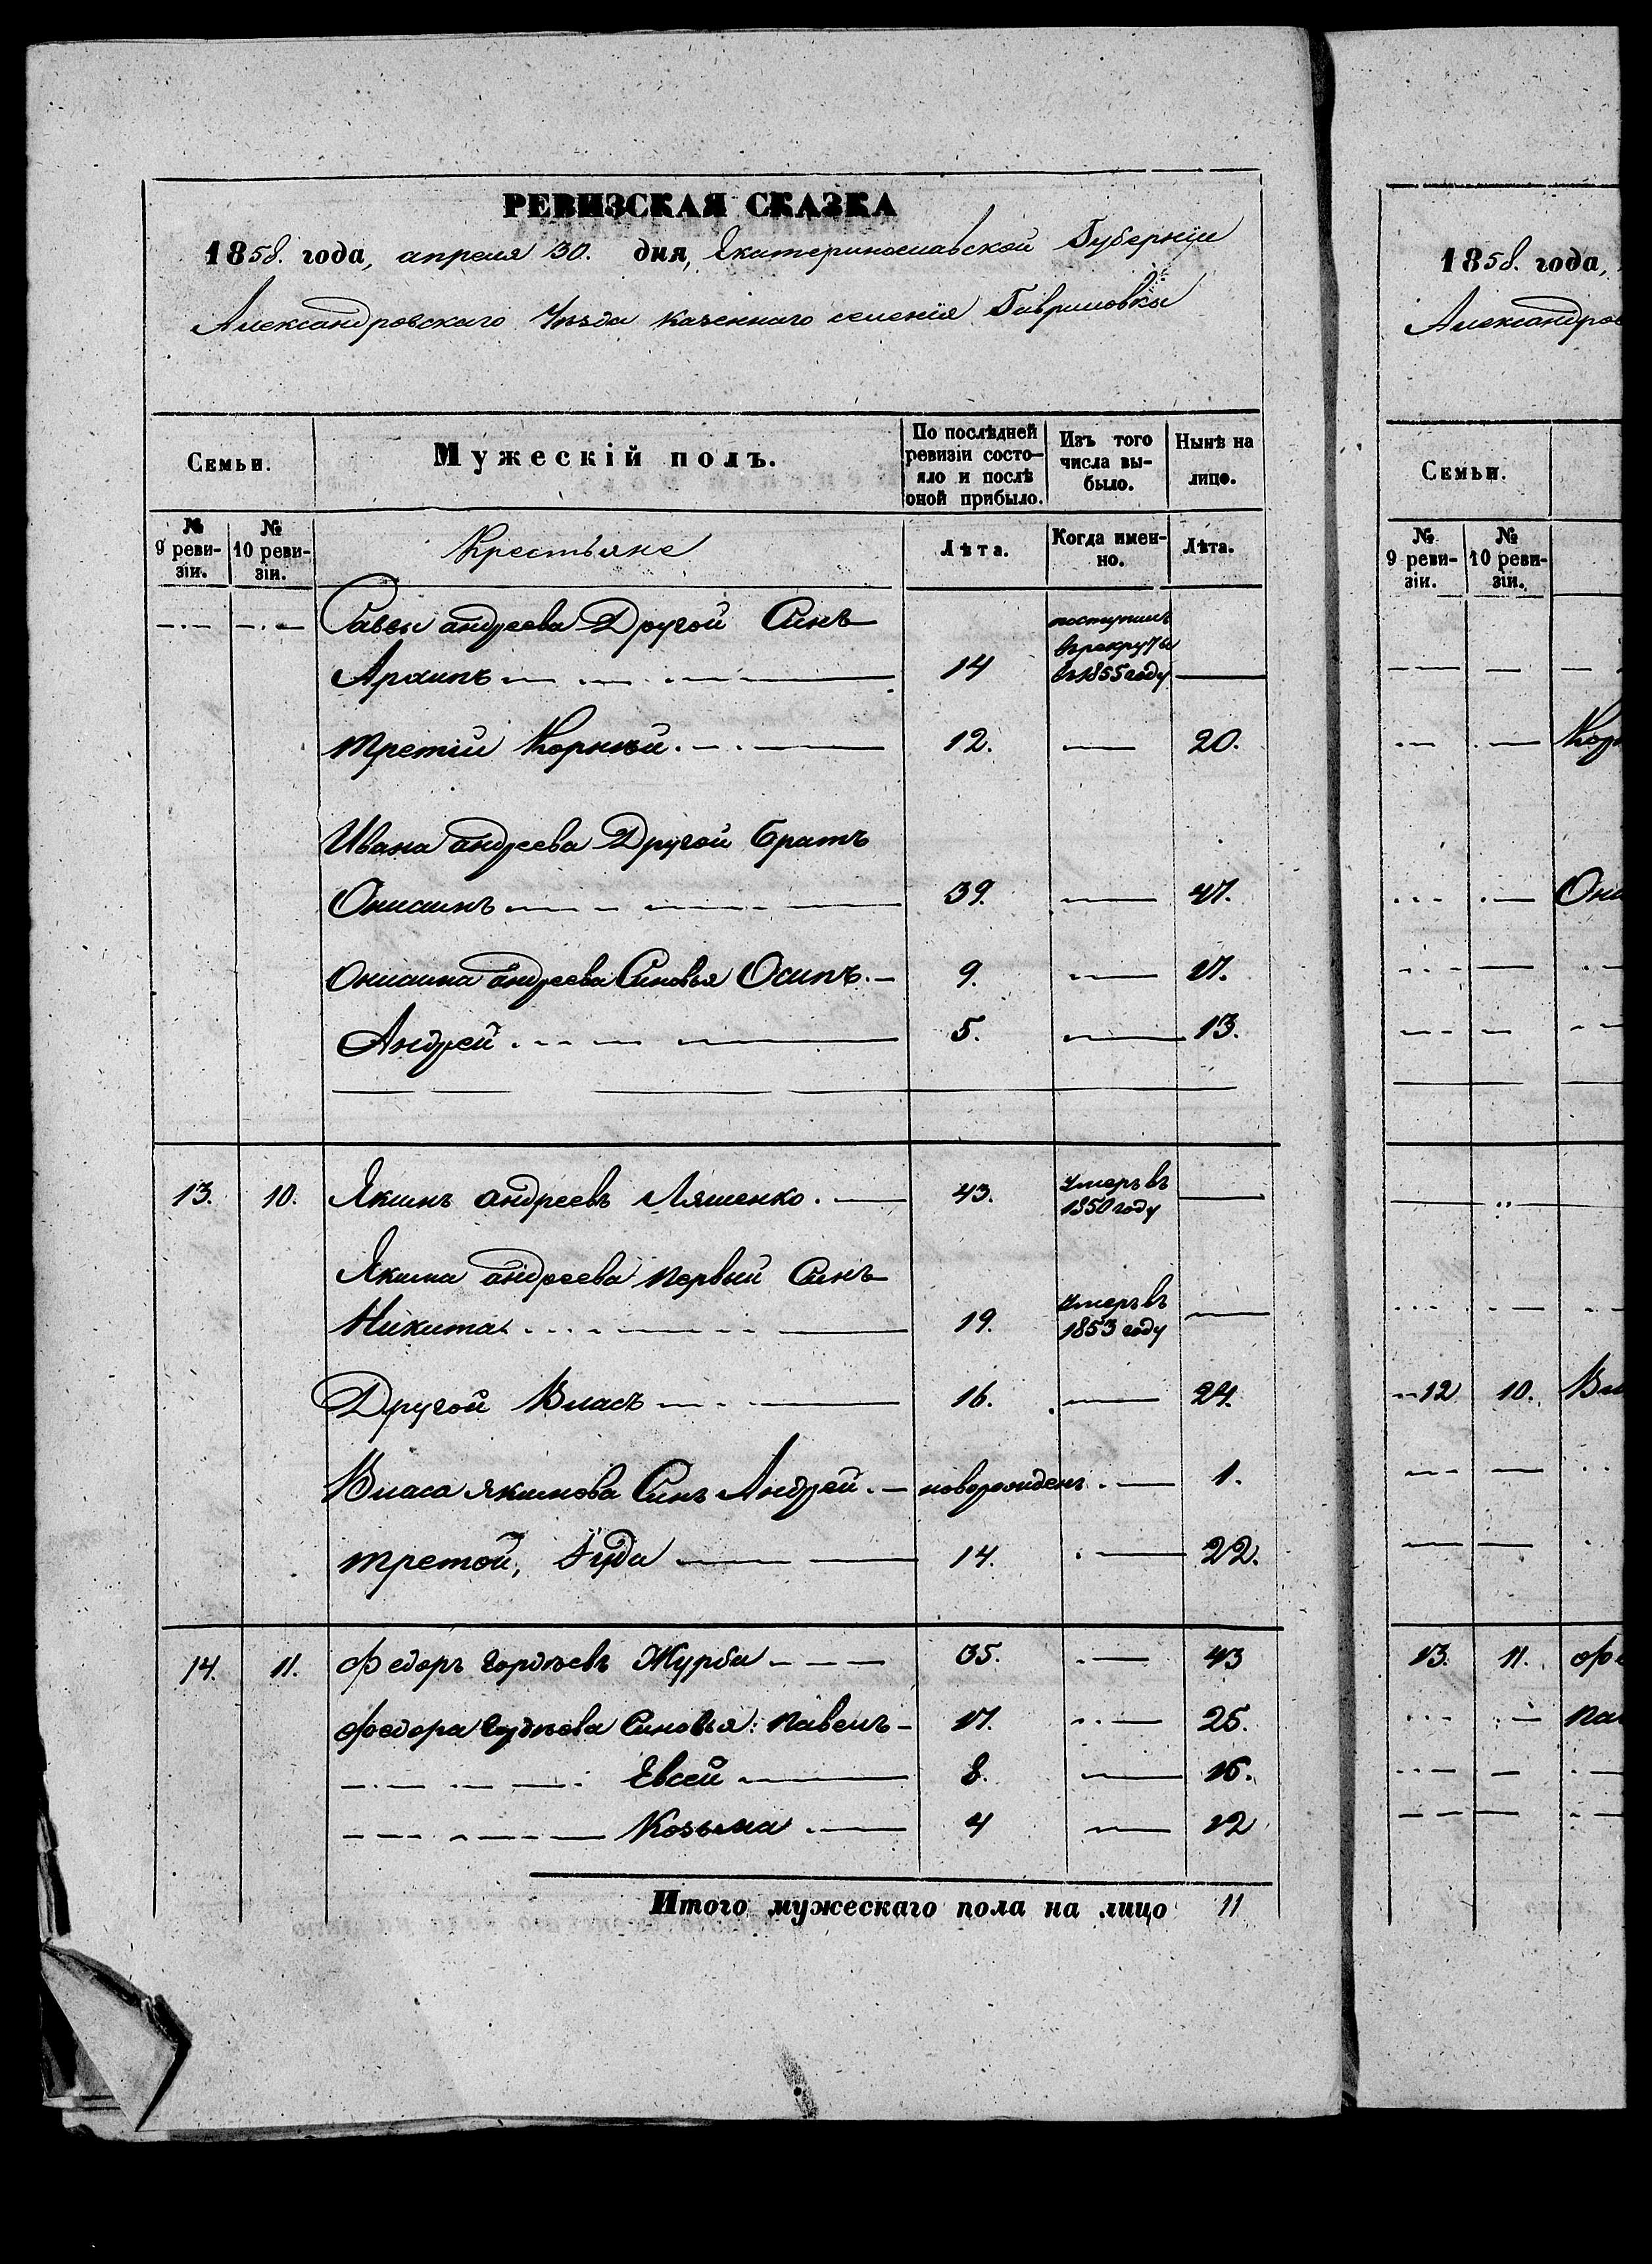 РЕВИЗСКАЯ СКАЗКА
1858. года, апреля 30. дня, Екатеринославской Губерніи
Александровскаго Уѣзда казеннаго селенія Гавриловки
Семьи.
Мужескій полъ.
По послѣдней ревизіи состояло и послѣ оной прибыло.
Изъ того числа выбыло.
Нынѣ на лицо.
№ 9 ревизіи.
№ 10 ревизіи.
Крестьяне
Лѣта.
Когда именно.
Лѣта.
Саввы андреева Другой Синъ
Архипъ 14 поступилъ въ рекруты въ 1855 году
третій Корнѣй. 12. 20.
Ивана андреева Другой братъ
Онисимъ 39. 47.
Онисима андреева Синовья Осипъ. 9. 17.
Андрей 5. 13.
13. 10. Якимъ андреевъ Ляшенко. 43. умеръ въ 1850 году
Якима андреева первый Синъ
Никита 19. умеръ въ 1853 году
Другой Власъ 16. 24.
Власа якимова Синъ Андрей. новорожденъ. 1.
третой, Іуда 14. 22.
14. 11. Федоръ гордѣевъ Журба 35. 43
Федора гордѣева Синовья: павелъ 17. 25.
Евсей 8. 16.
Козьма 4 12
Итого мужескаго пола на лицо 11
1858. года,
Александров
Семьи.
№ 9 ревизіи.
№ 10 ревизіи.
Кор
Они
12 10. Вла
13. 11. Фе
пав